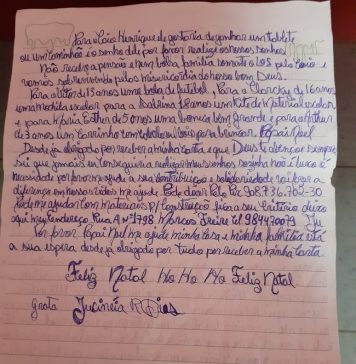 Para o Caio Henrique de gostaria de ganhar um tablete
ou um caminhão é o sonho dele por favor realize os nossos sonhos
Não recebo pensão e nem bolsa família somente o LOS pelo Caio e
vamos sobrevivendo pelas misericórdia do nosso bom Deus.
Para o Vitor de 13 anos uma bola de futebol. Para a de 16 anos
uma mochila escolar para a Sabrina 18 anos um Kit de Material escolar
e para Maria Esther de 5 anos uma boneca bem grande e para Arthur
de 3 anos um carrinho para brincar. Papai Noel
Desde já obrigado por receber minha carta e que Deus te abençoe sempre
sei que jamais eu conseguiria realizar meus sonhos sozinha não é luxo é
necessidade por favor me ajude a sua contribuição e solidariedade vai fazer a
diferença em nossas vidas me ajude Pode doar pelo Pix 908.736.702-30
Pode me ajudar com materiais p/ construção fica a seu critério deixo
aqui meu endereço Rua A nº 1798 Marcos Freire tel 984470079 Ju
Por favor Papai Noel me ajude minha casa e minha família está
a sua espera desde já obrigado por tudo por receber a minha carta.
Feliz Natal Ho Ho Ho Feliz Natal
Grata Jucineia R Dias